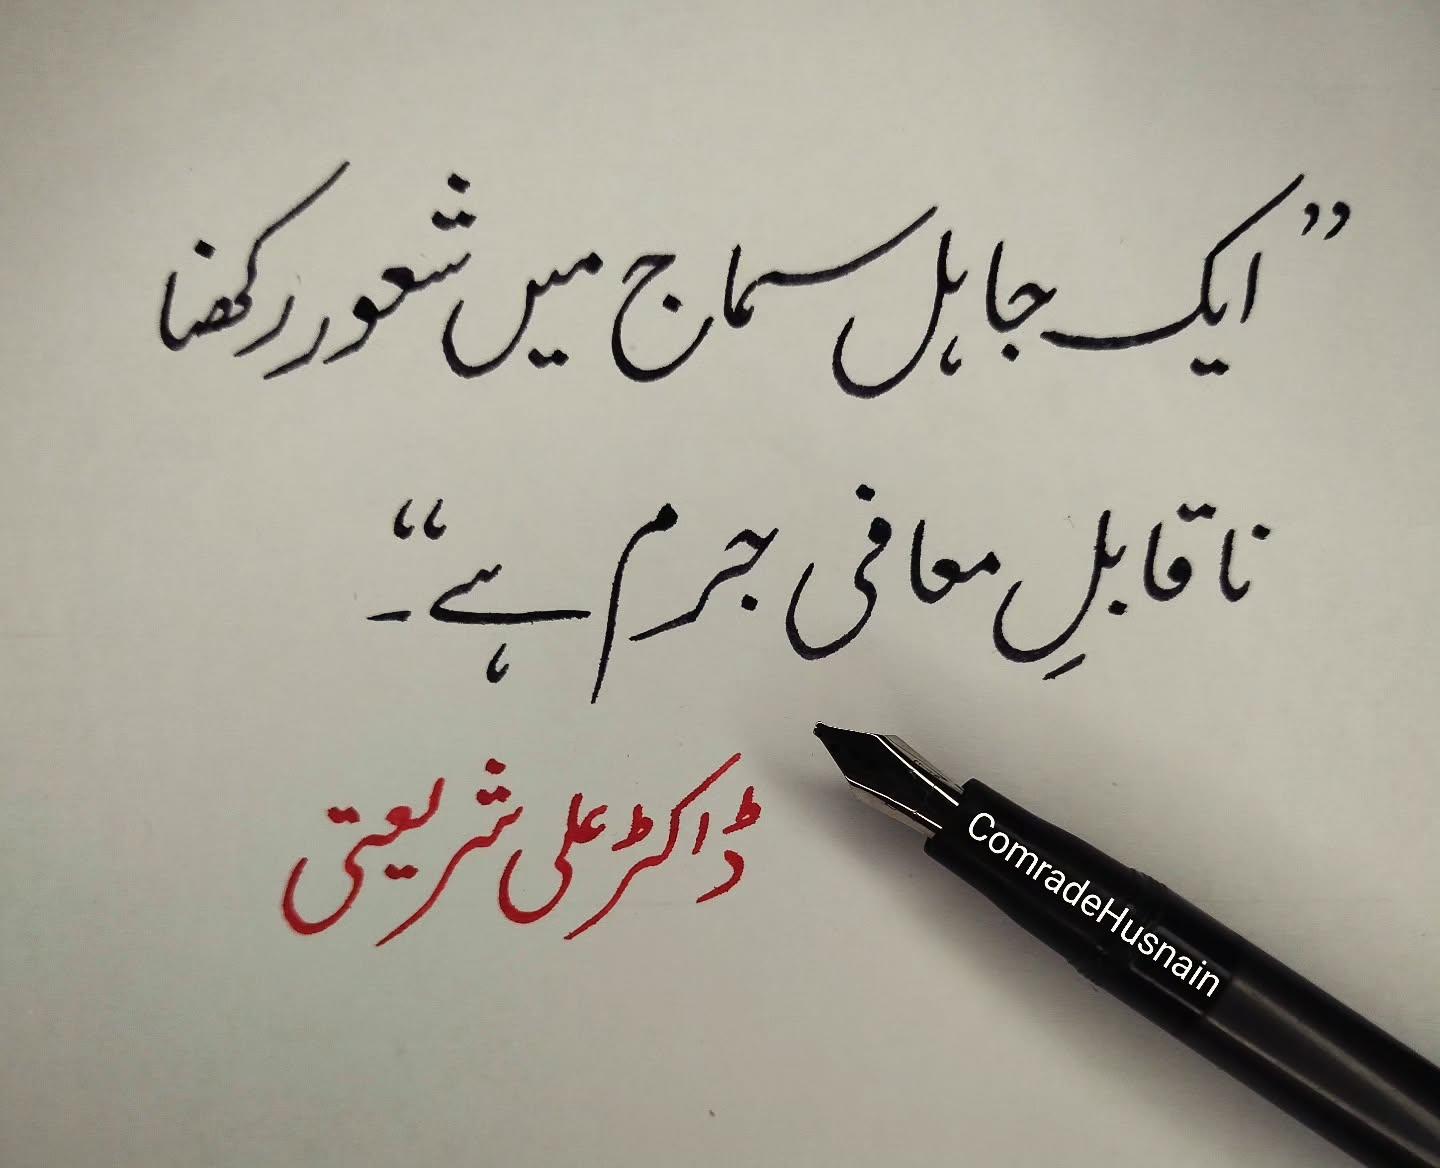 ”ایک جاہل سماج میں شعور رکھنا
ناقابلِ معافی جرم ہے۔“
ڈاکٹر علی شریعتی
ComradeHusnain